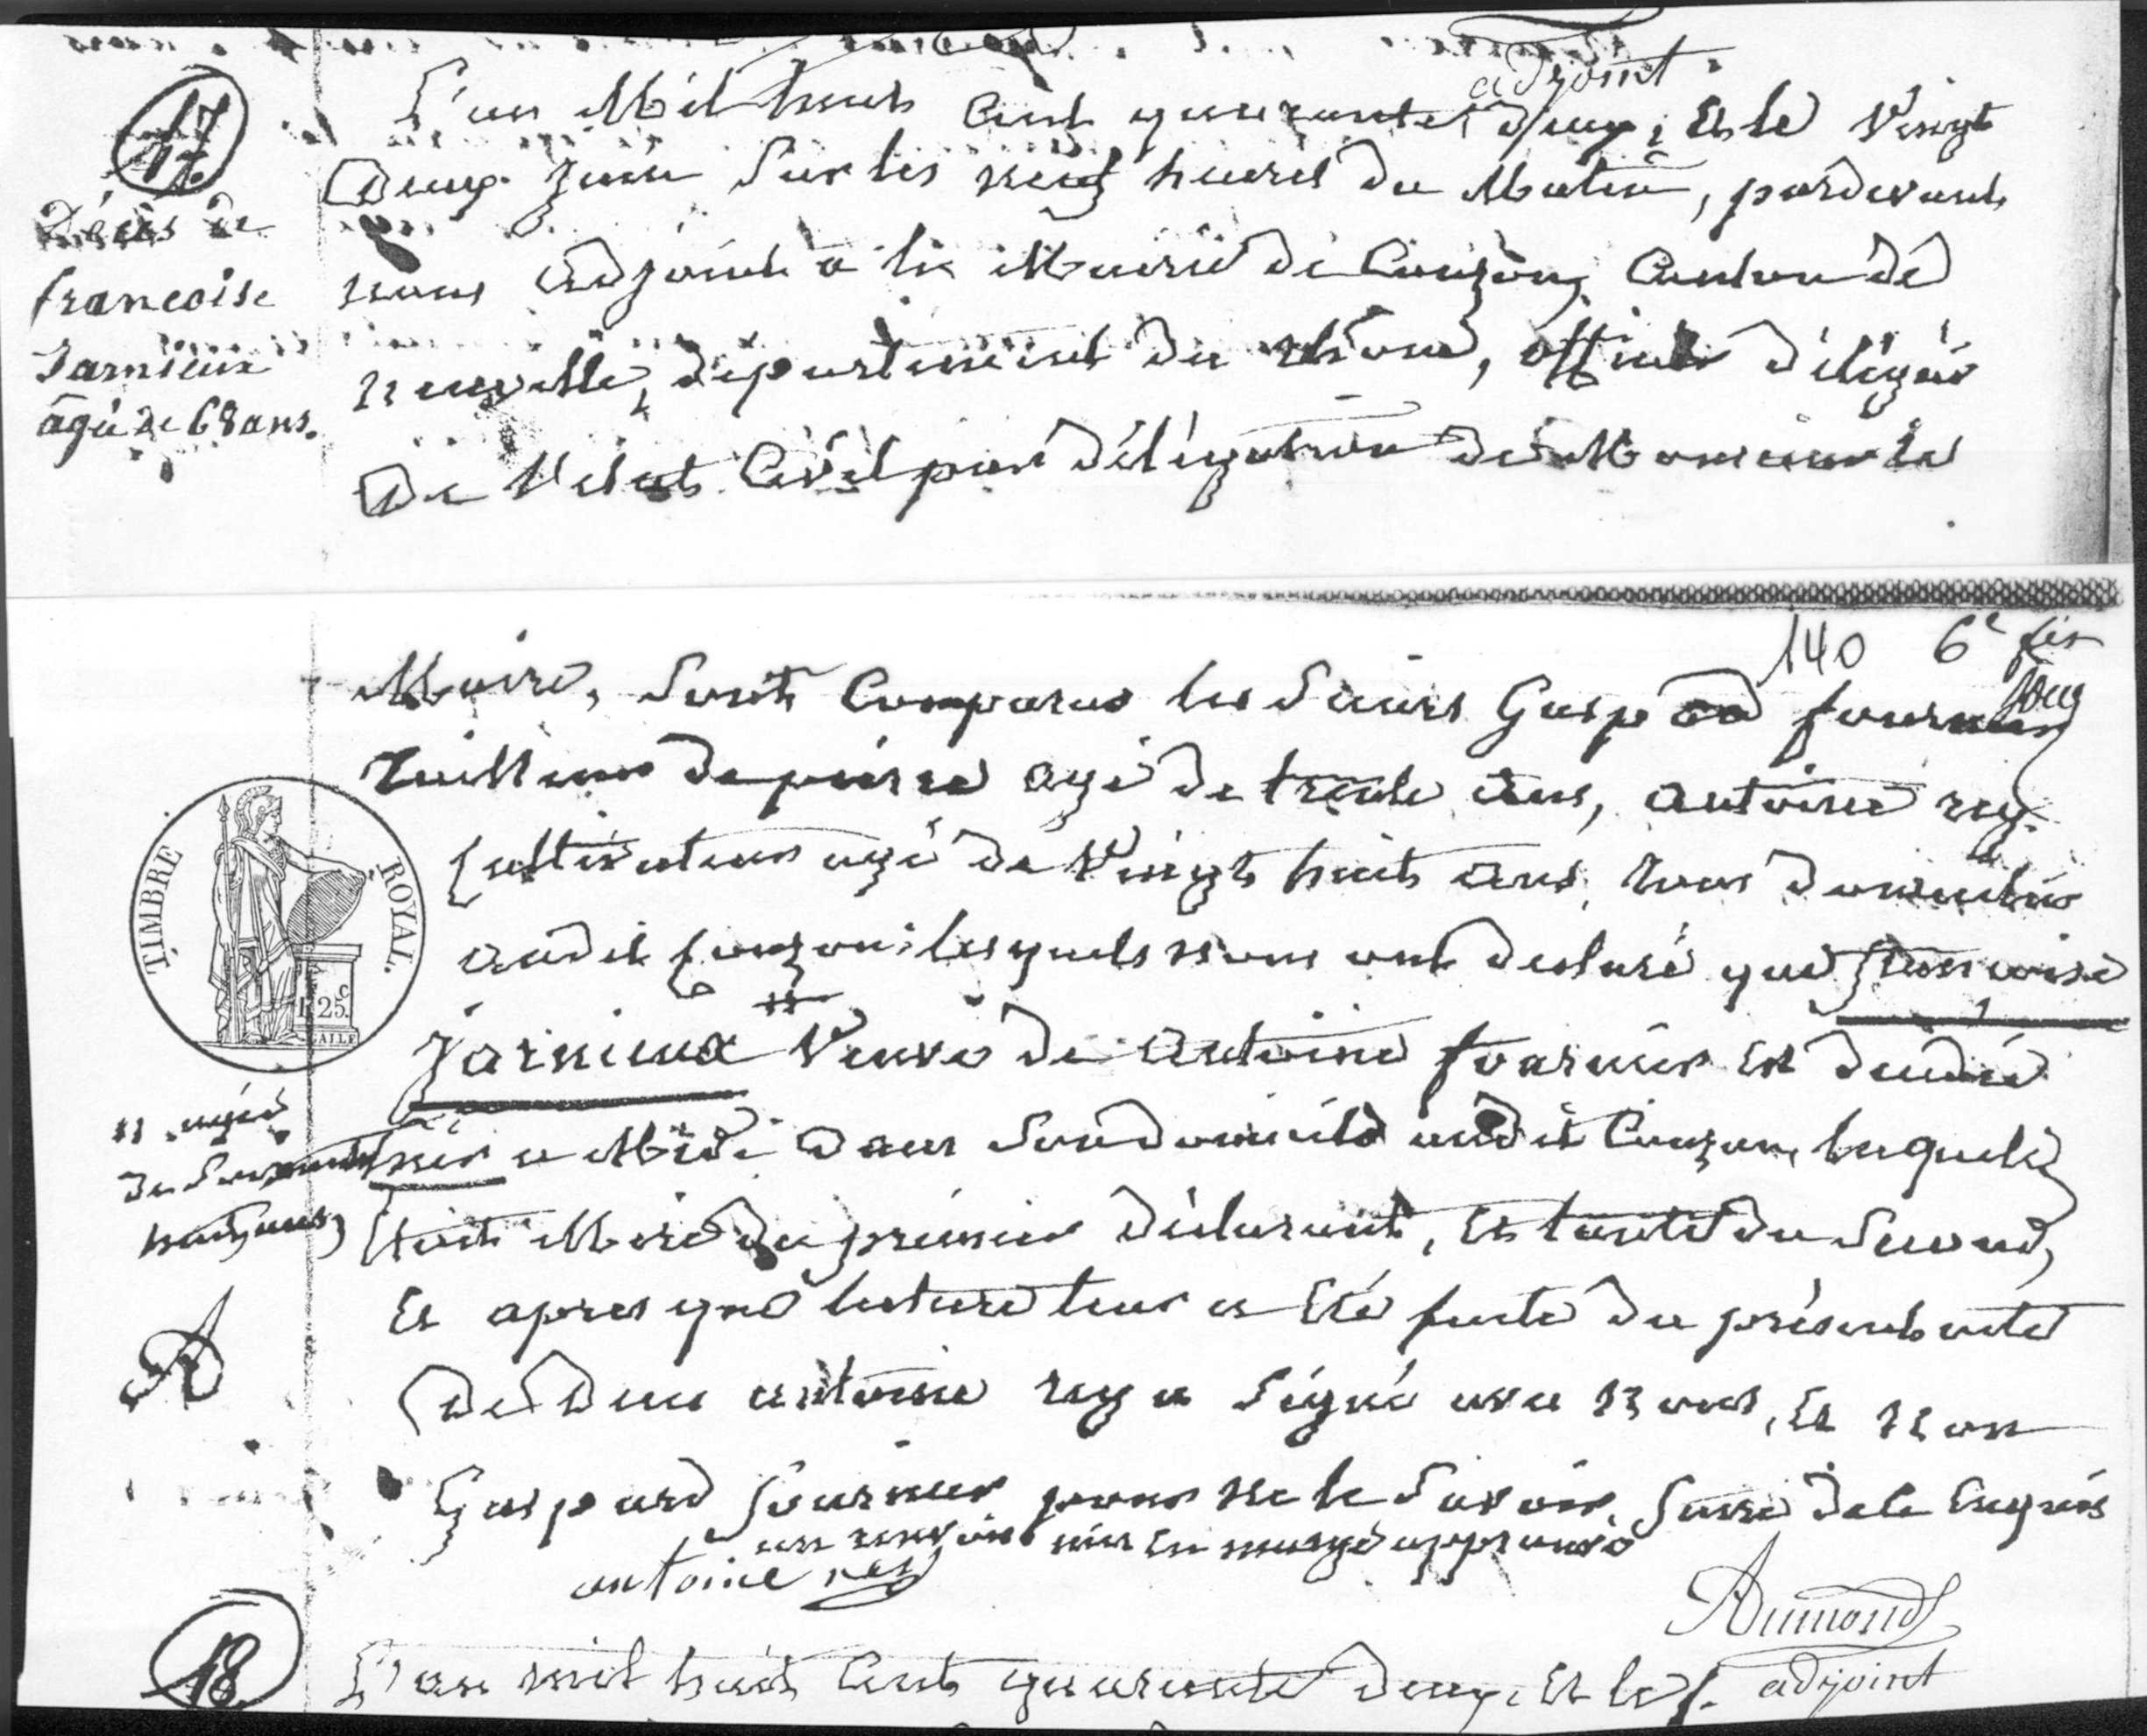 adjoint
17
Décès de
francoise
Jarnieux
âgé de 68 ans.
L'an Mil huit Cent quarante deux, Et le Vingt
Deux juin Sur les neuf heures du Matin, pardevant
nous Adjoint a la Mairie de Couzon, Canton de
neuville, département du rhône, officier délégué
De l'etat Civil par délégation de Monsieur le
140 6e
Maire, Sont Comparus les Sieurs Gaspard fournier
tailleur de pierre agé de trente ans, antoine rey
Cultivateur agé de Vingt huit ans, tous domiciliés
audit Couzon; lesquels nous ont declaré que francoise
Jarnieux # Veuve de antoine fournier Est décédée
hier a Midi Dans Son domicile audit Couzon, laquelle
Etoit Mere du premier déclarant, Et tante du Second,
Et apres que lecture leur a Eté faite du présent acte
De Deces antoine rey a Signé avec nous, Et non
Gaspard fournier pour ne le Savoir, de ce Enquis
un renvoi mis En marge approuvé
# agée
de Soixante
huit ans
TIMBRE ROYAL.
25
c
antoine rey
Aumond
adjoint
18
L'an mil huit Cent quarante deux, Et le